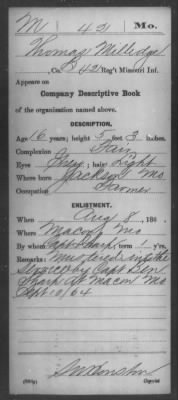 M | 42 | Mo.
Thomas Milledge
Co. B, 42 Reg't Missouri Inf.
Appears on
Company Descriptive Book
of the organization named above.
DESCRIPTION.
Age 16 years; height 5 feet 3 inches.
Complexion Fair
Eyes Grey; hair Light
Where born Jackson Mo
Occupation Farmer
ENLISTMENT.
When Aug 8, 186 .
Where Macon, Mo
By whom Capt Sharp; term 1 y'rs.
Remarks: Mustered into the
Service by Capt Ben
Sharp at Macon Mo
Sept 10/64
Copyist